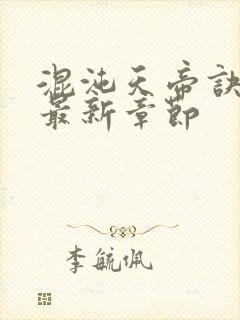 混沌天帝诀
最新章节
李毓佩